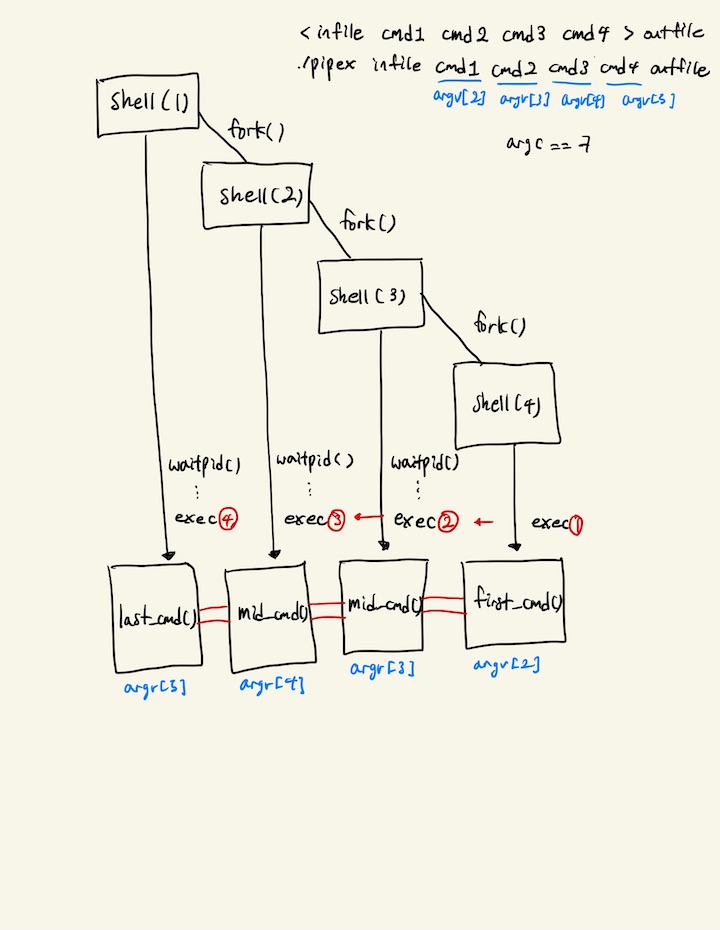 < infile cmd1 cmd2 cmd3 cmd4 > outfile
./pipex infile cmd1 cmd2 cmd3 cmd4 outfile
argv[2] argv[3] argv[4] argv[5]
argc == 7
Shell(1)
fork()
Shell(2)
fork()
Shell(3)
fork()
Shell(4)
waitpid() waitpid() waitpid()
exec④ exec③ ← exec② ← exec①
last_cmd() mid_cmd() mid_cmd() first_cmd()
argv[5] argv[4] argv[3] argv[2]